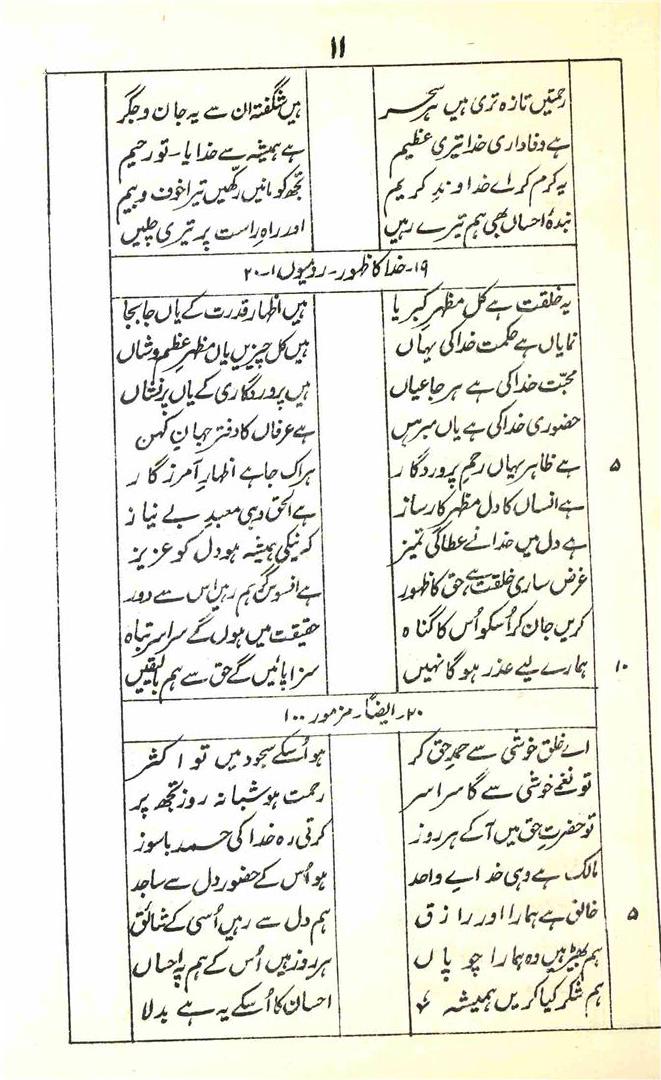 ۱۱
رحمتیں تازہ تری ہیں ہر سحر ہیں شگفتہ ان سے یہ جان و جگر
ہے وفاداری خدا تیری عظیم ہے ہمیشہ سے خدایا - تو رحیم
یہ کرم کر اے خداوندِ کریم تجھ کو مانیں رکھیں تیرا خوف و بیم
بندۂ احساں بھی ہم تیرے رہیں اور راہِ راست پر تیری چلیں
۱۹- خدا کا ظہور - رومیوں ۱-۲۰
یہ خلقت ہے کل مظہرِ کبریا ہیں اظہارِ قدرت کے یاں جا بجا
نمایاں ہے حکمت خدا کی یہاں ہیں کل چیزیں یاں مظہرِ عظم و شاں
محبّت خدا کی ہے ہر جا عیاں ہیں پروردگاری کے یاں پر نشاں
حضوری خدا کی ہے یاں ہے عرفاں کا دفتر جہانِ کہن
۵ ہے ظاہر یہاں رحمِ پروردگار ہر اک جا ہے اظہارِ آمرزگار
ہے انساں کا دل مظہرِ کارساز ہے الحق وہی معبدِ بے نیاز
ہے دل میں خدا نے عطا کی تمیز کہ نیکی ہمیشہ ہو دل کو عزیز
غرض ساری خلقت ہے حق کا ظہور ہے افسوس گر ہم رہیں اس سے دور
کریں جان کر اُسکو اُس کا گناہ حقیقت میں ہوں گے سراسر تباہ
۱۰ ہمارے لیے عذر ہو گا نہیں سزا پائیں گے حق سے ہم بالیقیں
۲۰- ایضاً - مزمور ۱۰۰
اے خلق خوشی سے حمدِ حق کر ہو اُسکے سجود میں تو اکثر
تو نغمے خوشی سے گا سراسر رحمت ہو شبانہ روز تجھ پر
تو حضرتِ حق میں آ کے ہر روز کرتی رہ خدا کی حمد باسوز
مالک ہے وہی خداے واحد ہو اُس کے حضور دل سے ساجد
۵ خالق ہے ہمارا اور رازق ہم دل سے رہیں اُسی کے شائق
ہم بھیڑ ہیں وہ ہمارا چوپاں ہر روز ہیں اُس کے ہم پہ احساں
ہم شکر کیا کریں ہمیشہ احسان کا اُسکے یہ ہے بدلا